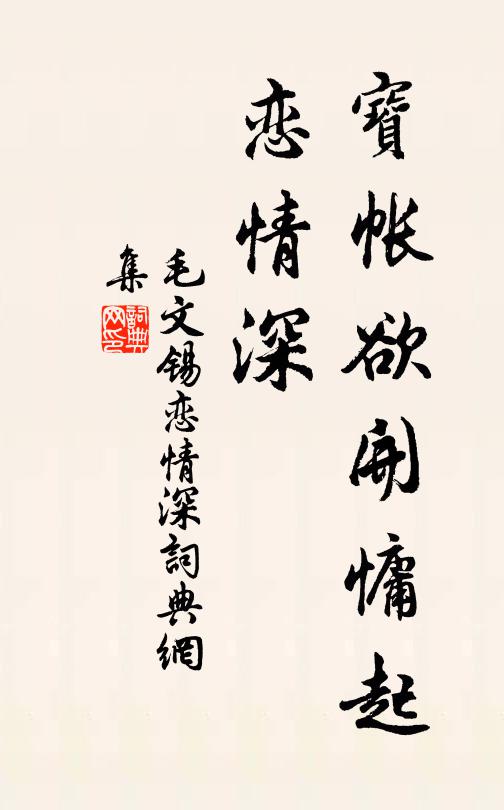 寶帳欲開慵起
恋情深
毛文锡恋情深詞典網
集
詞典
网印